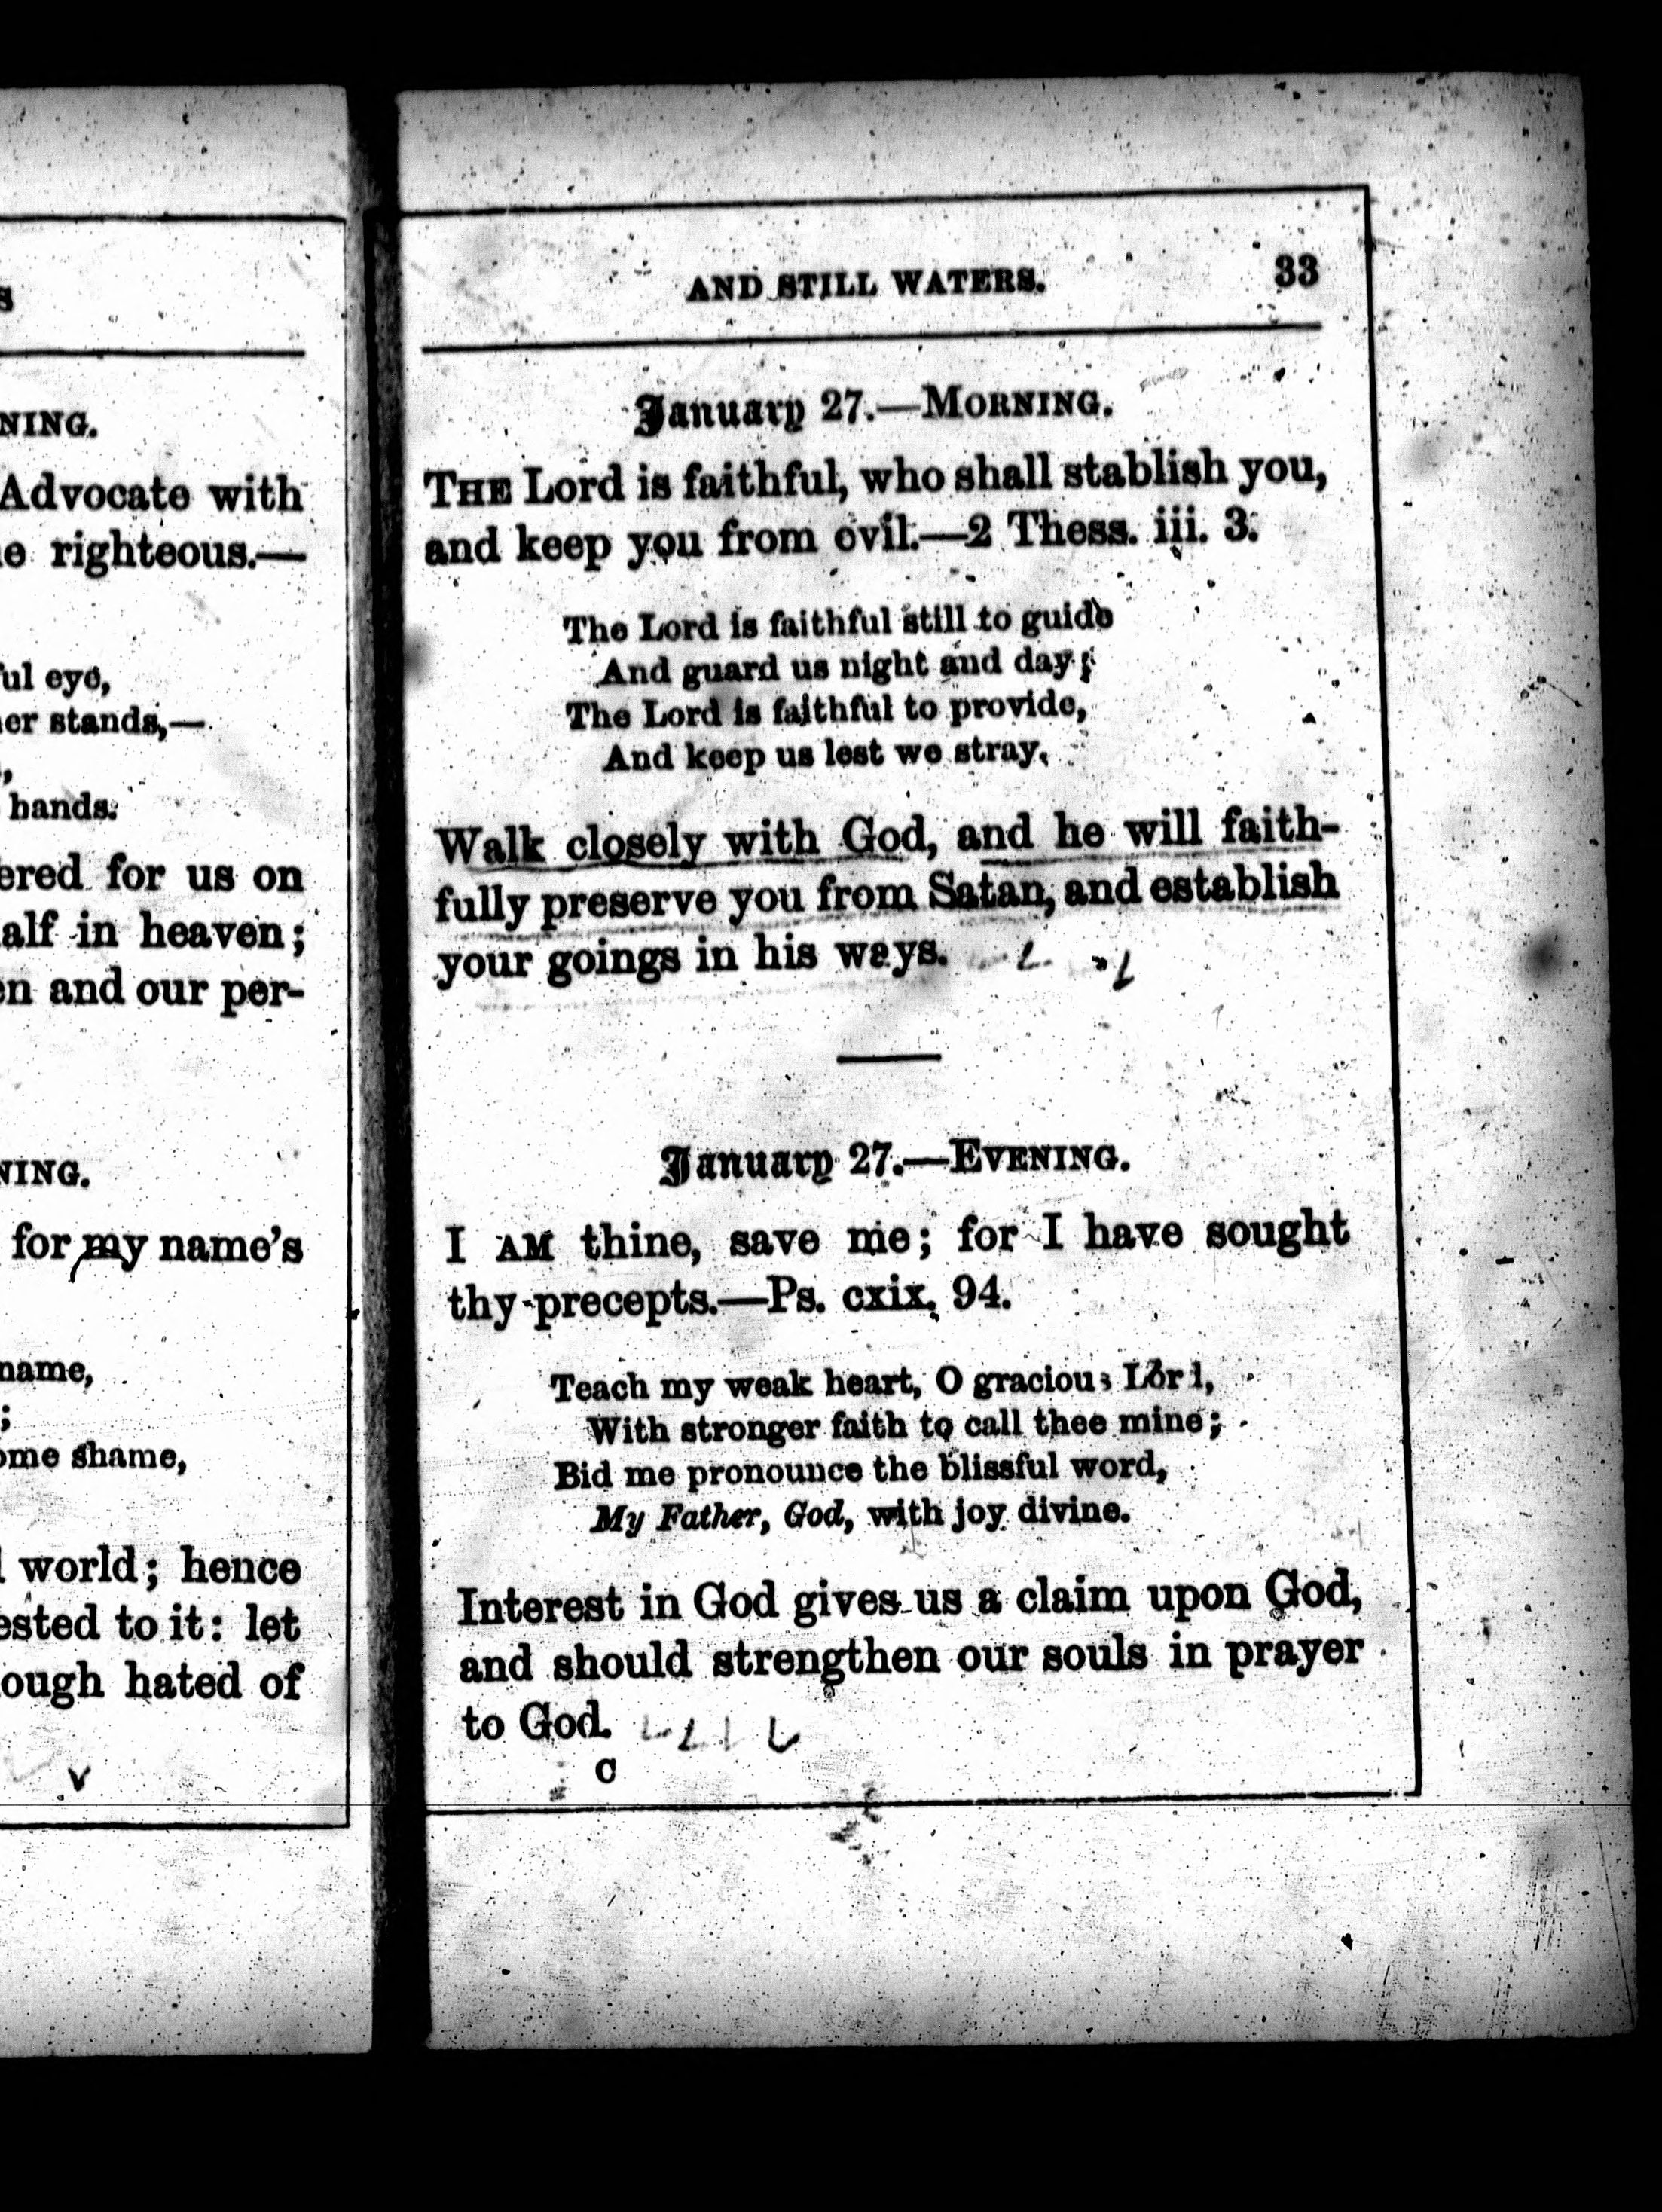 S
NING.
Advocate with
righteous.—
eye,
stands,—
hands.
for us on
in heaven;
and our per-
NING.
for my name's
name,
;
shame,
world; hence
to it: let
hated of
AND STILL WATERS. 33
January 27.—MORNING.
THE Lord is faithful, who shall stablish you,
and keep you from evil.—2 Thess. iii. 3.
The Lord is faithful still to guide
And guard us night and day;
The Lord is faithful to provide,
And keep us lest we stray.
Walk closely with God, and he will faith-
fully preserve you from Satan, and establish
your goings in his ways.
January 27.—EVENING.
I AM thine, save me; for I have sought
thy precepts.—Ps. cxix. 94.
Teach my weak heart, O gracious Lord,
With stronger faith to call thee mine;
Bid me pronounce the blissful word,
My Father, God, with joy divine.
Interest in God gives us a claim upon God,
and should strengthen our souls in prayer
to God.
C